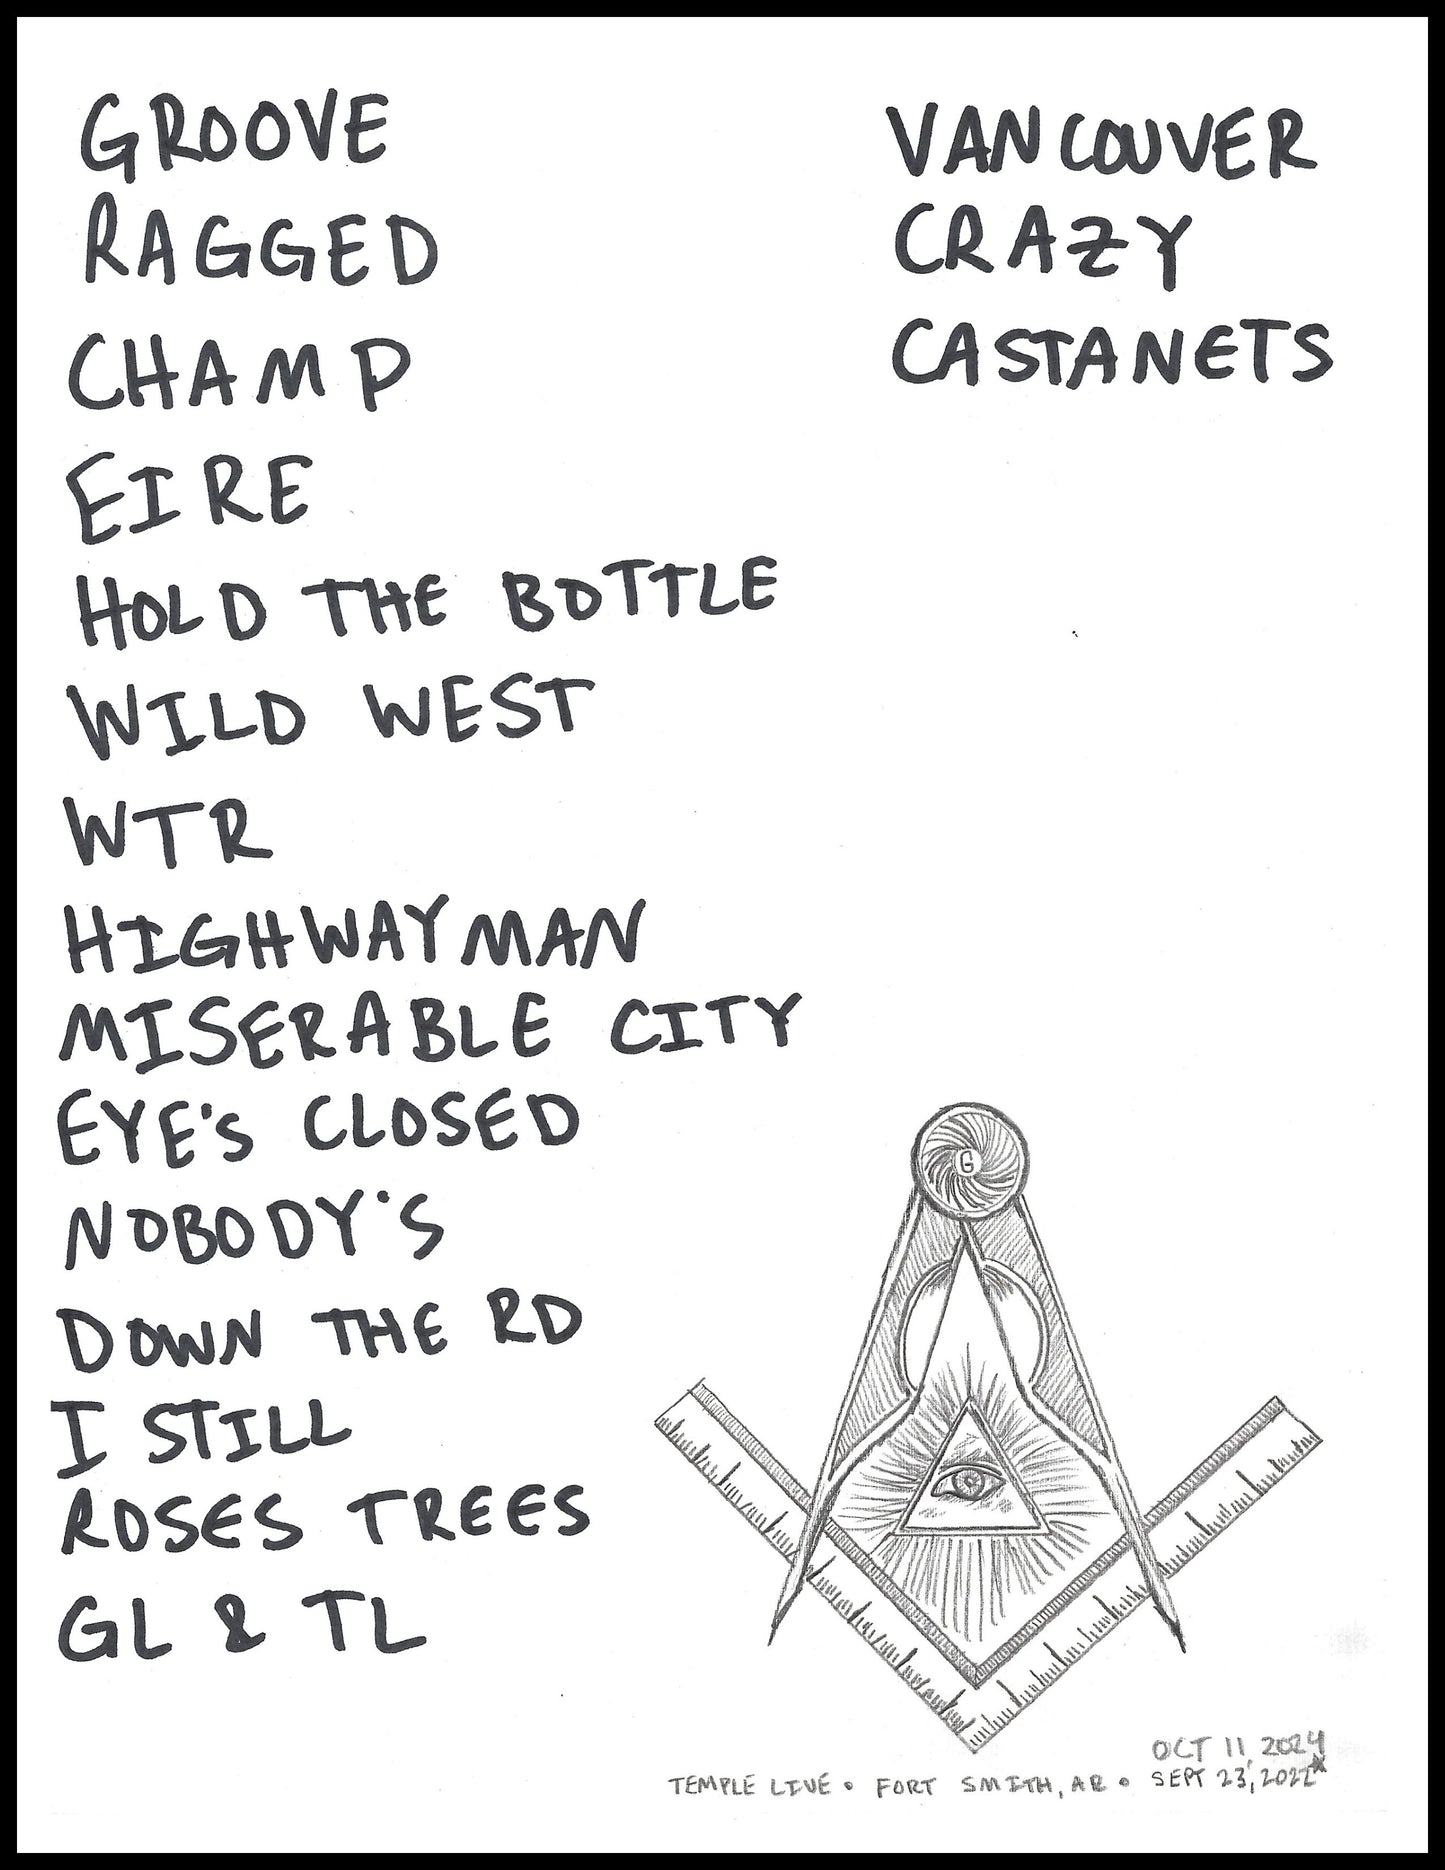 GROOVE
RAGGED
CHAMP
EIRE
HOLD THE BOTTLE
WILD WEST
WTR
HIGHWAYMAN
MISERABLE CITY
EYE'S CLOSED
NOBODY'S
DOWN THE RD
I STILL
ROSES TREES
GL & TL
VANCOUVER
CRAZY
CASTANETS
G
OCT 11, 2024
TEMPLE LIVE • FORT SMITH, AR • SEPT 23, 2022*